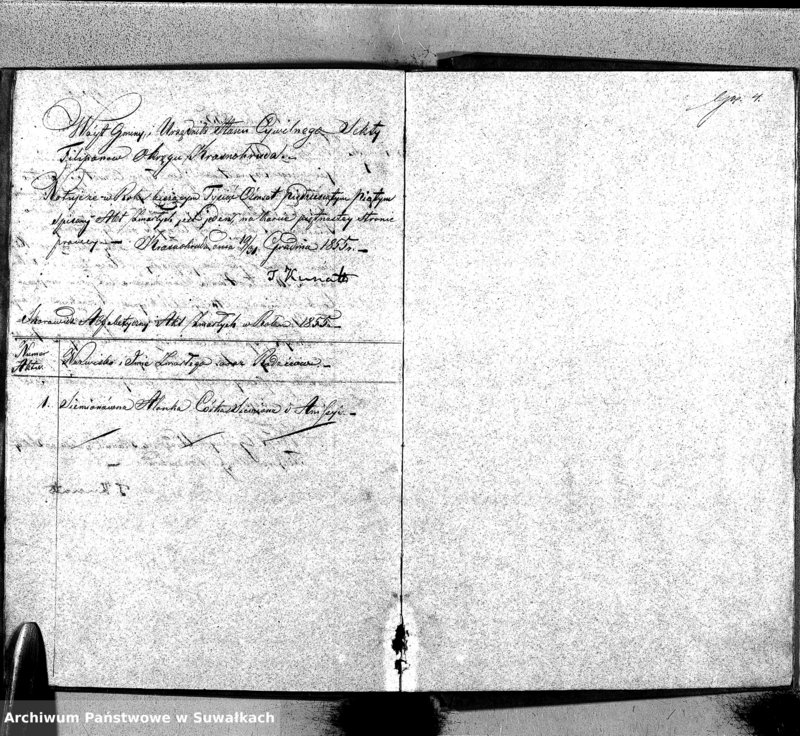 Wójt Gminy i Urzędnik Stanu Cywilnego Sekty
Filiponów Okręgu Krasnohruda.
w Roku bieżącym Tysiąc Ośmset pięćdziesiątym piątym
spisany Akt Zmarłych jest jeden na karcie piętnastej stronie
prawey — Krasnohruda dnia 19/31 Grudnia 1855 r. —
T Kunatt
Skorowidz Alfabetyczny Akt Zmarłych w Roku 1855. —
Numer
Aktu.
Nazwisko i Imie Zmarłego oraz Rodziców. —
1. Siemionówna Córka Siemiona i
4.
Archiwum Państwowe w Suwałkach